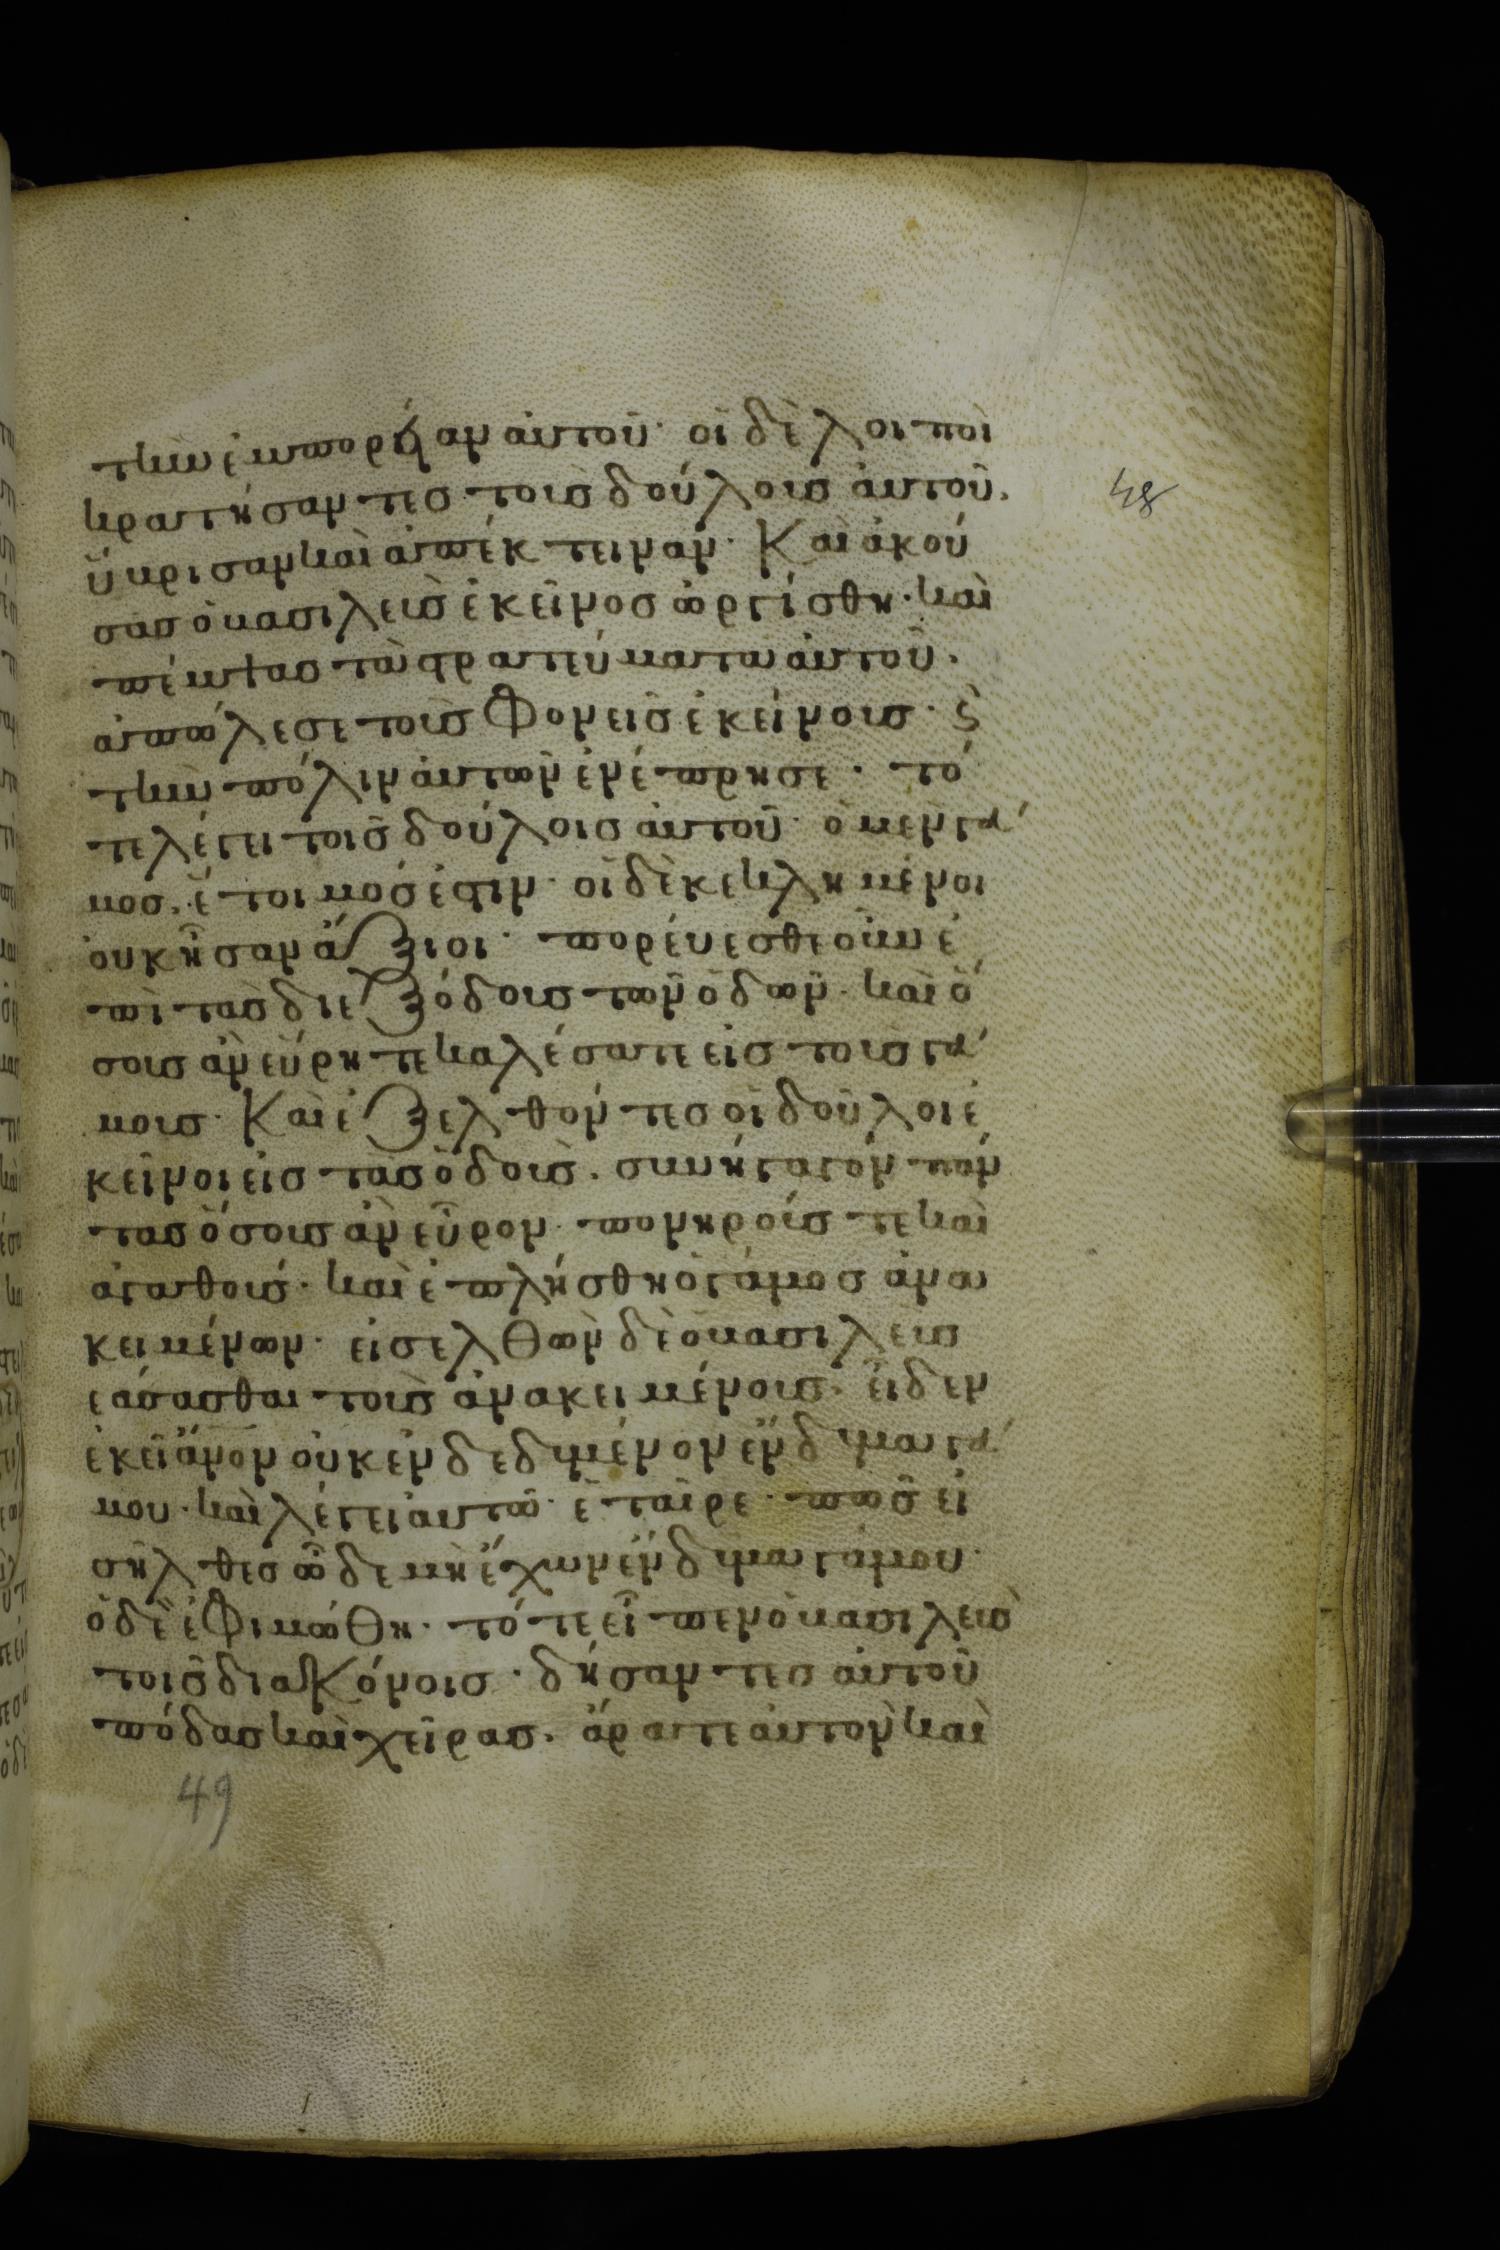 τὴν ἐμπορίαν αὐτοῦ· οἱ δὲ λοιποὶ
κρατήσαντες τοὺς δούλους αὐτοῦ,
ὕβρισαν καὶ ἀπέκτειναν· Καὶ ἀκού
48
σας ὁ βασιλεὺς ἐκεῖνος ὠργίσθη· καὶ
πέμψας τὰ στρατεύματα αὐτοῦ·
ἀπώλεσε τοὺς φονεῖς ἐκείνους· ϛ̀
τὴν πόλιν αὐτῶν ἐνέπρησε· τό
τε λέγει τοῖς δούλοις αὐτοῦ· ὁ μὲν γά
μος, ἕτοιμός ἐστιν· οἱ δὲ κεκλημένοι
οὐκ ἦσαν ἄξιοι· πορέυεσθε οὖν ἐ
πὶ τὰς διεξόδους τῶν ὁδῶν· καὶ ὅ
σους ἂν εὕρητε καλέσατε εἰς τοὺς γά
μους· Καὶ ἐξελθόντες οἱ δοῦλοι ἐ
κεῖνοι εἰς τὰς ὁδοὺς· συνήγαγον πάν
τας ὅσους ἂν εὗρον· πονηρούς τε καὶ
ἀγαθούς· καὶ ἐπλήσθη ὁ γάμος ἀνα
κειμένων· εἰσελθὼν δὲ ὁ βασιλεὺς
θεάσασθαι τοὺς ἀνακειμένους· εἶδεν
ἐκεῖ ἄνον οὐκ ἐνδεδυμένον ἔνδυμα γά
μου· καὶ λέγει αὐτῷ· ἑταῖρε· πῶς εἰ
σῆλθες ὧδε μὴ ἔχων ἔνδυμα γάμου·
ὁ δὲ ἐφιμώθη· τότε εἶπεν ὁ βασιλεὺς
τοῖς διακόνοις· δήσαντες αὐτοῦ
πόδας καὶ χεῖρας· ἄρατε αὐτὸν καὶ
49